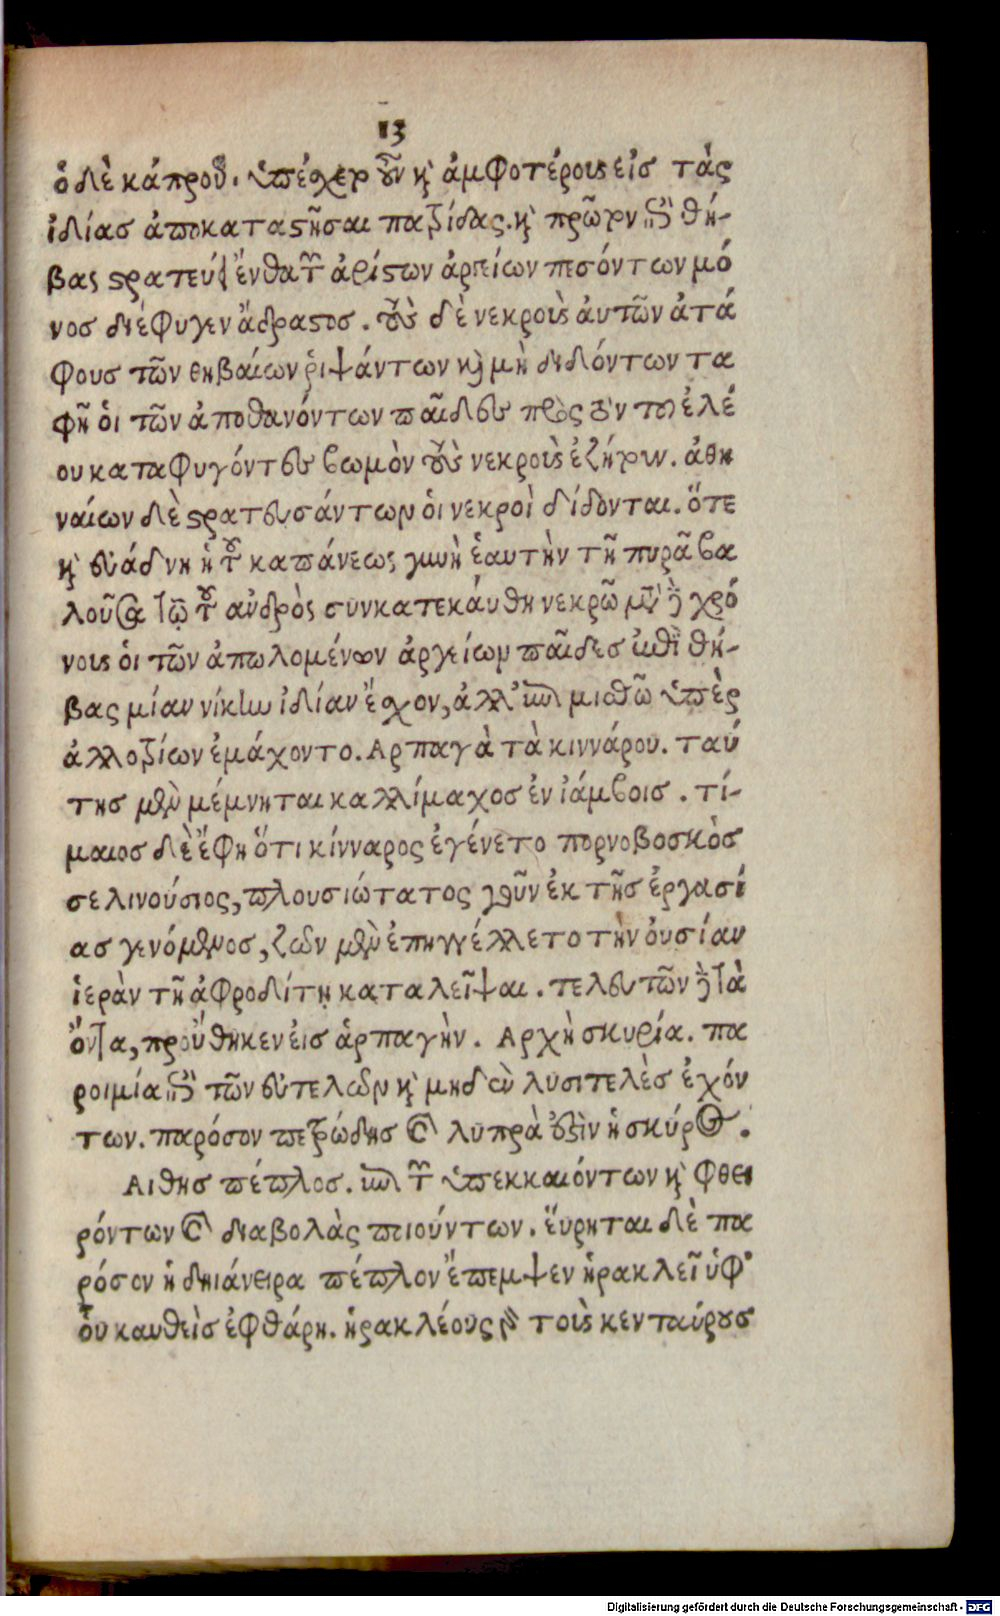 13
ὁ δὲ κάπρου. ὑπέσχετο οὖν καὶ ἀμφοτέρους εἰς τὰς
ἰδίας ἀποκαταστῆσαι πατρίδας. καὶ πρῶτον ἐπὶ θή-
βας στρατεύει ἔνθα τῶν ἀρίστων ἀργείων πεσόντων μό
νος διέφυγεν ἄδραστος. τοὺς δὲ νεκροὺς αὐτῶν ἀτά
φους τῶν θηβαίων ῥιψάντων καὶ μὴ διδόντων τα
φῆ οἱ τῶν ἀποθανόντων παῖδες πρὸς τὸν τοῦ ἐλέ
ου καταφυγόντες βωμὸν τοὺς νεκροὺς ἐζήτουν. ἀθη
ναίων δὲ στρατευσάντων οἱ νεκροὶ δίδονται. ὅτε
καὶ εὐάδνη ἡ τοῦ καπάνεως γυνὴ ἑαυτὴν τῆ πυρᾶ βα
λοῦσα τῶ τοῦ ἀνδρὸς συνκατεκάυθη νεκρῶ μετὰ χρό
νους οἱ τῶν ἀπωλομένων ἀργείων παῖδες ἐπὶ θή-
βας μίαν νίκην ἰδίαν ἔχον, ἀλλ' ἐπὶ μισθῶ ὑπὲρ
ἀλλοτρίων ἐμάχοντο. Αρπαγὰ τὰ κιννάρου. ταύ
της μὲν μέμνηται καλλίμαχος ἐν ἰάμβοις. τί-
μαιος δὲ ἔφη ὅτι κίνναρος ἐγένετο πορνοβοσκὸς
σελινούσιος, πλουσιώτατος γοῦν ἐκ τῆς ἐργασί
ας γενόμενος, ζῶν μὲν ἐπηγγέλλετο τὴν οὐσίαν
ἱερὰν τῆ ἀφροδίτη καταλεῖψαι. τελευτῶν τὰ
ὄντα, προὔθηκεν εἰς ἁρπαγὴν. Αρχὴ σκυρία. πα
ροιμία ἐπὶ τῶν εὐτελῶν καὶ μηδὲν λυσιτελὲς ἐχόν
των. παρόσον πετρώδης καὶ λυπρὰ ἐστὶν ἡ σκύρος.
Αιθης πέπλος. ἐπὶ τῶν ὑπεκκαιόντων καὶ φθει
ρόντων καὶ διαβολὰς ποιούντων. εὕρηται δὲ πα
ρόσον ἡ δηιάνειρα πέπλον ἔπεμψεν ἡρακλεῖ ὑφ'
οὗ καυθεὶς ἐφθάρη. ἡρακλέους γὰρ τοὺς κενταύρους
Digitalisierung gefördert durch die Deutsche Forschungsgemeinschaft - DFG